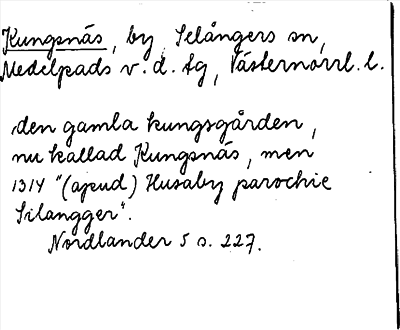 Kungsnäs, by, Selångers sn,
Medelpads v. d. tg, Västernorrl. l.
den gamla kungsgården,
nu kallad Kungsnäs, men
1314 "(apud) Husaby parochie
Silangger".
Nordlander 5 s. 227.